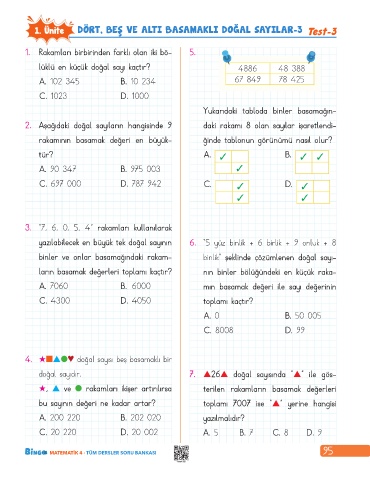 1. Ünite DÖRT, BEŞ VE ALTI BASAMAKLI DOĞAL SAYILAR-3 Test-3
1. Rakamları birbirinden farklı olan iki bö-
lüklü en küçük doğal sayı kaçtır?
A. 102 345 B. 10 234
C. 1023 D. 1000
2. Aşağıdaki doğal sayıların hangisinde 9
rakamının basamak değeri en büyük-
tür?
A. 90 347 B. 975 003
C. 697 000 D. 787 942
3. "7, 6, 0, 5, 4" rakamları kullanılarak
yazılabilecek en büyük tek doğal sayının
binler ve onlar basamağındaki rakam-
ların basamak değerleri toplamı kaçtır?
A. 7060 B. 6000
C. 4300 D. 4050
4. ★■▲●♥ doğal sayısı beş basamaklı bir
doğal sayıdır.
★, ▲ ve ● rakamları ikişer artırılırsa
bu sayının değeri ne kadar artar?
A. 200 220 B. 202 020
C. 20 220 D. 20 002
5.
4886 48 388
67 849 78 425
Yukarıdaki tabloda binler basamağın-
daki rakamı 8 olan sayılar işaretlendi-
ğinde tablonun görünümü nasıl olur?
A. ✓ ✓ B. ✓ ✓
C. ✓ ✓ D. ✓ ✓
6. "5 yüz binlik + 6 birlik + 9 onluk + 8
binlik" şeklinde çözümlenen doğal sayı-
nın binler bölüğündeki en küçük raka-
mın basamak değeri ile sayı değerinin
toplamı kaçtır?
A. 0 B. 50 005
C. 8008 D. 99
7. ▲26▲ doğal sayısında "▲" ile gös-
terilen rakamların basamak değerleri
toplamı 7007 ise "▲" yerine hangisi
yazılmalıdır?
A. 5 B. 7 C. 8 D. 9
BİNGO MATEMATİK 4 - TÜM DERSLER SORU BANKASI
95